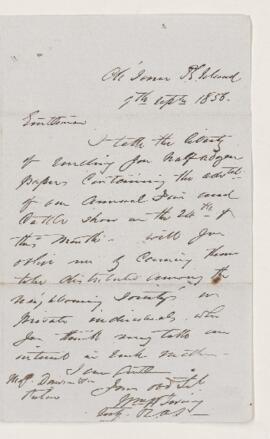 9th Septr 1856.
Gentlemen
I take the liberty
of sending you half a dozen
papers containing the advt
of our Annual Fair and
Cattle Show on the 24th of
this Month. will you
oblige me by causing them
to be distributed among the
neighbouring Society's or
private individuals who
you think may take an
interest in such matters
I am Gentlen
Your obdt St